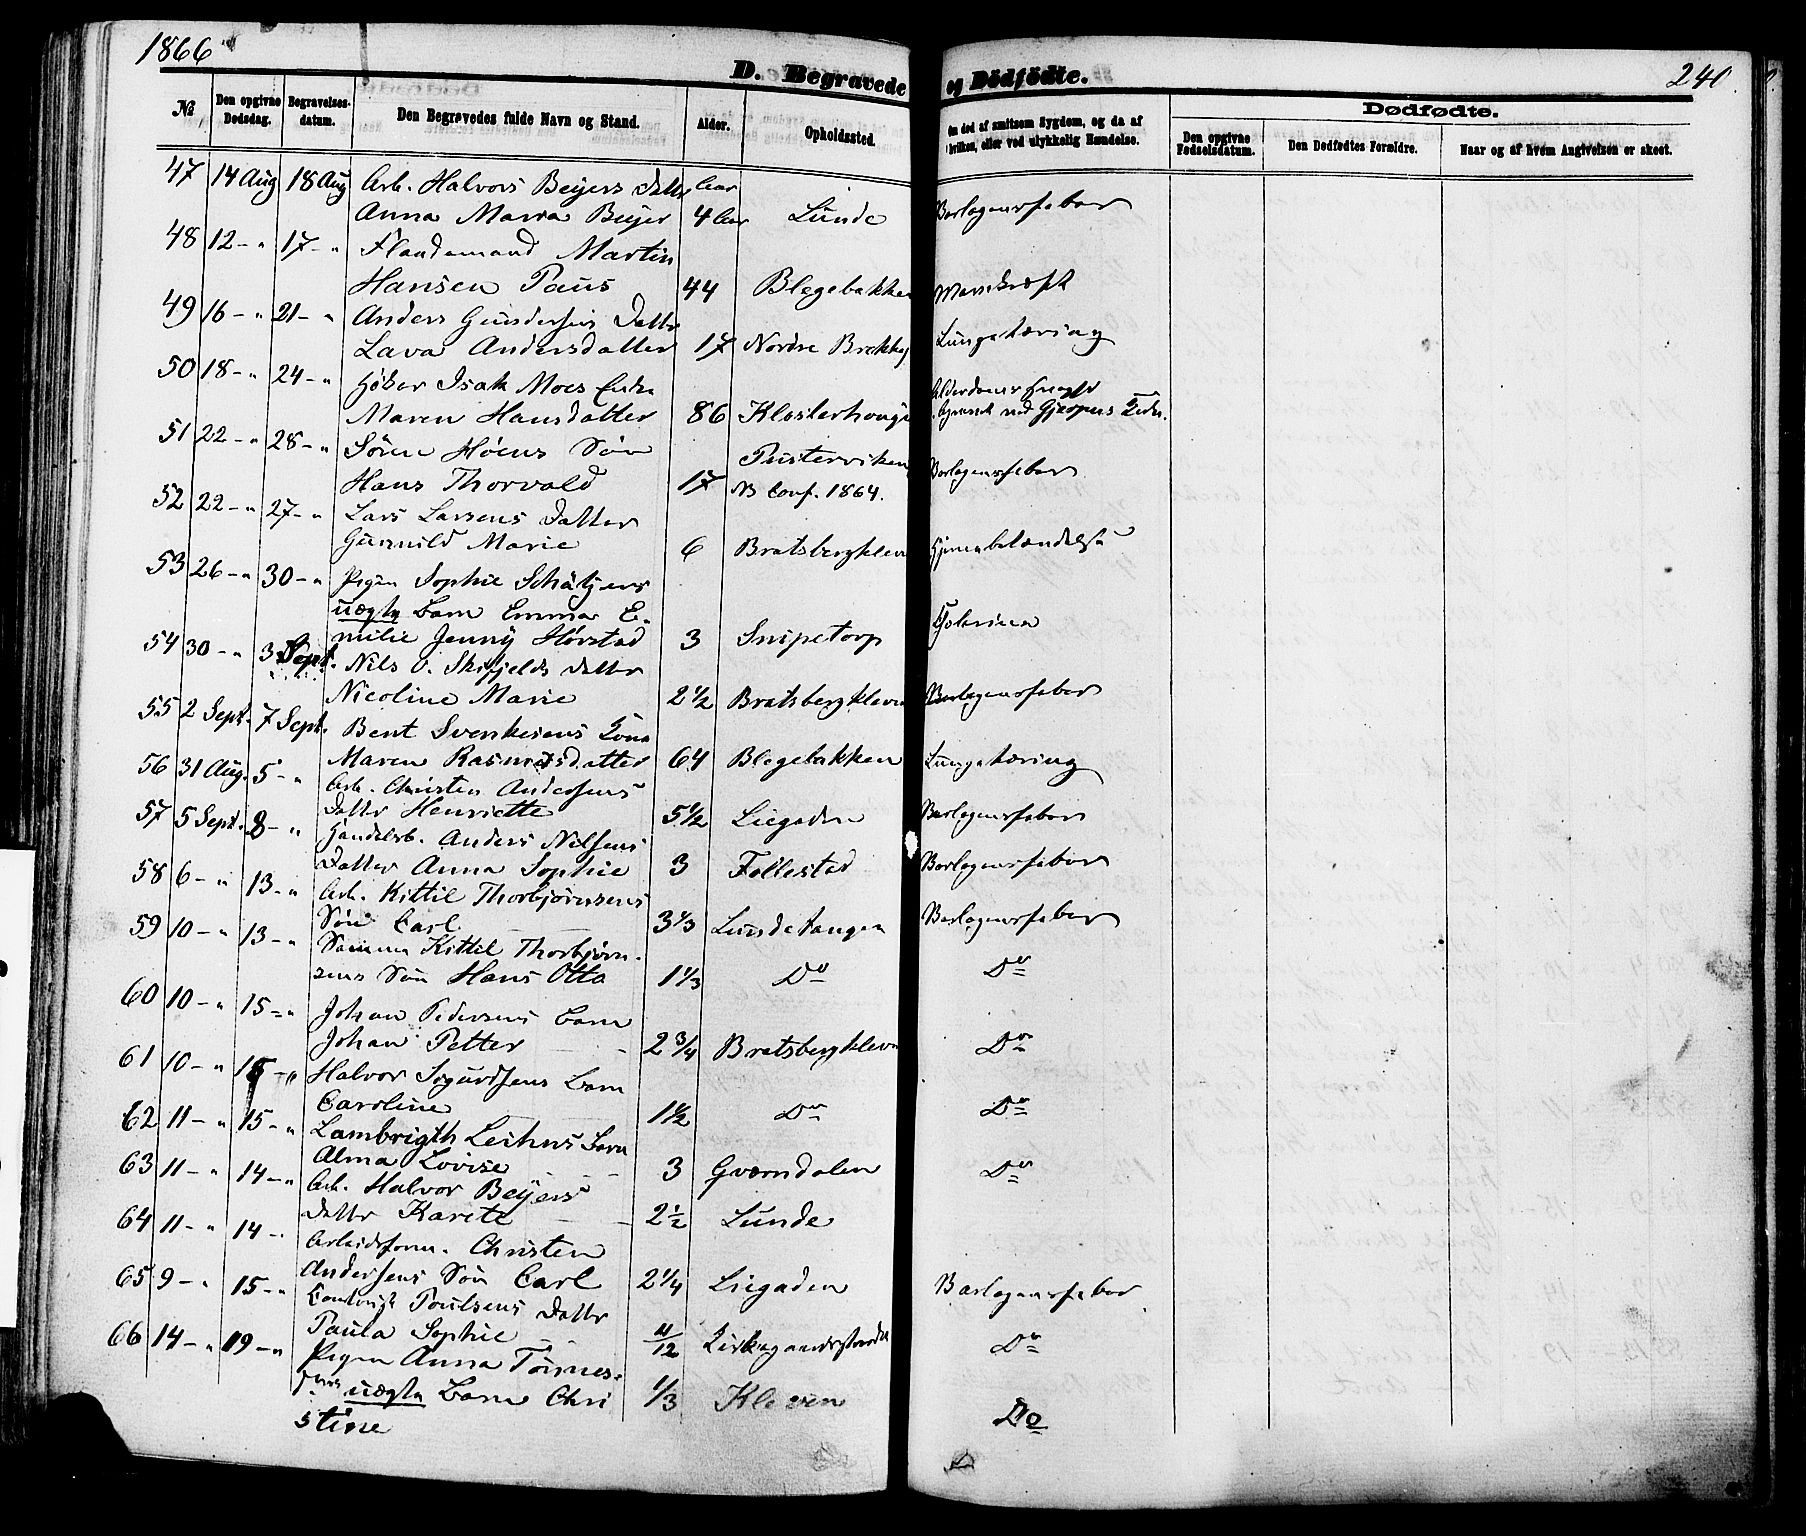 1866
240
D. Begravede og Dödfödte.
№
Den opgivne Dødsdag.
Begravelses-datum.
Den Begravedes fulde Navn og Stand.
Alder.
Opholdssted.
død af smitsom Sygdom, og da af hvilken, eller ved ulykkelig Hændelse.
Dødfødte.
Den opgivne Fødselsdatum.
Den Dødfødtes Forældre.
Naar og af hvem Angivelsen er skeet.
47 14 Aug 18 Aug Arb. Halvors Beyers Datter
Anna Maria Beyer 4 Aar Lunde Barlagensfeber
48 12 - " 17 - " Flaademand Martin
Hansen Paus 44 Blegebakken
49 16 - " 21 - " Anders Gundersens Datter
Lava Andersdatter 17 Nordre Brekke Lungetæring
50 18 - " 24 - " Isak Moes Enke
Maren Hansdatter 86 Klosterhougen
51 22 - " 28 - " Sören Höens Sön
Hans Thorvald 17 Pusterviken Barlagensfeber
NB Conf. 1864.
52 22 - " 27 - " Lars Larsens Datter
Gunnild Marie 6 Bratsbergkleven Hjernebetændelse
53 26 - " 30 - " Pigen Sophie
uægte Barn Emma E-
milie Jenny Hörstad 3 Snipetorp Cholerina
54 30 - " 3 Sept. Nils O. Skifjelds Datter
Nicoline Marie 2 1/2 Bratsbergkleven Barlagensfeber
55 2 Sept. 7 Sept. Bent Svenkesens Kone
Maren Rasmusdatter 64 Blegebakken Lungetæring
56 31 Aug. 5 - " Arb. Christen Andersens
Datter Henriette 5 1/2 Liegaden Barlagensfeber
57 5 Sept. 8 - " Handelsb. Anders Nilsens
Datter Anna Sophie 3 Follestad Barlagensfeber
58 6 - " 13 - " Arb. Kittil Thorbjörnsens
Sön Carl 3 1/3 Lundetangen Barlagensfeber
59 10 - " 13 - " Samme Kittil Thorbjörn-
sens Sön Hans Otto 1 1/3 Do Do
60 10 - " 15 - " Johan Pedersens Barn
Johan Petter 2 3/4 Bratsbergkleven Do
61 10 - " 15 - " Halvor Sigurdsens Barn
Caroline 1 1/2 Do Do
62 11 - " 15 - " Lambrigth Barn
Alma Lovise 3 Gværndalen Do
63 11 - " 14 - " Arb. Halvor Beyers
Datter Karete 2 1/2 Lunde
64 11 - " 14 - Arbeidsform. Christen
Andersens Sön Carl 2 1/4 Liegaden Barlagensfeber
65 9 - " 15 - " Poulsens Datter
Paula Sophie 11/12 Do
66 14 - " 19 - " Pigen Anna Tönnes-
uægte Barn Chri 1/3 Kleven Do
stine